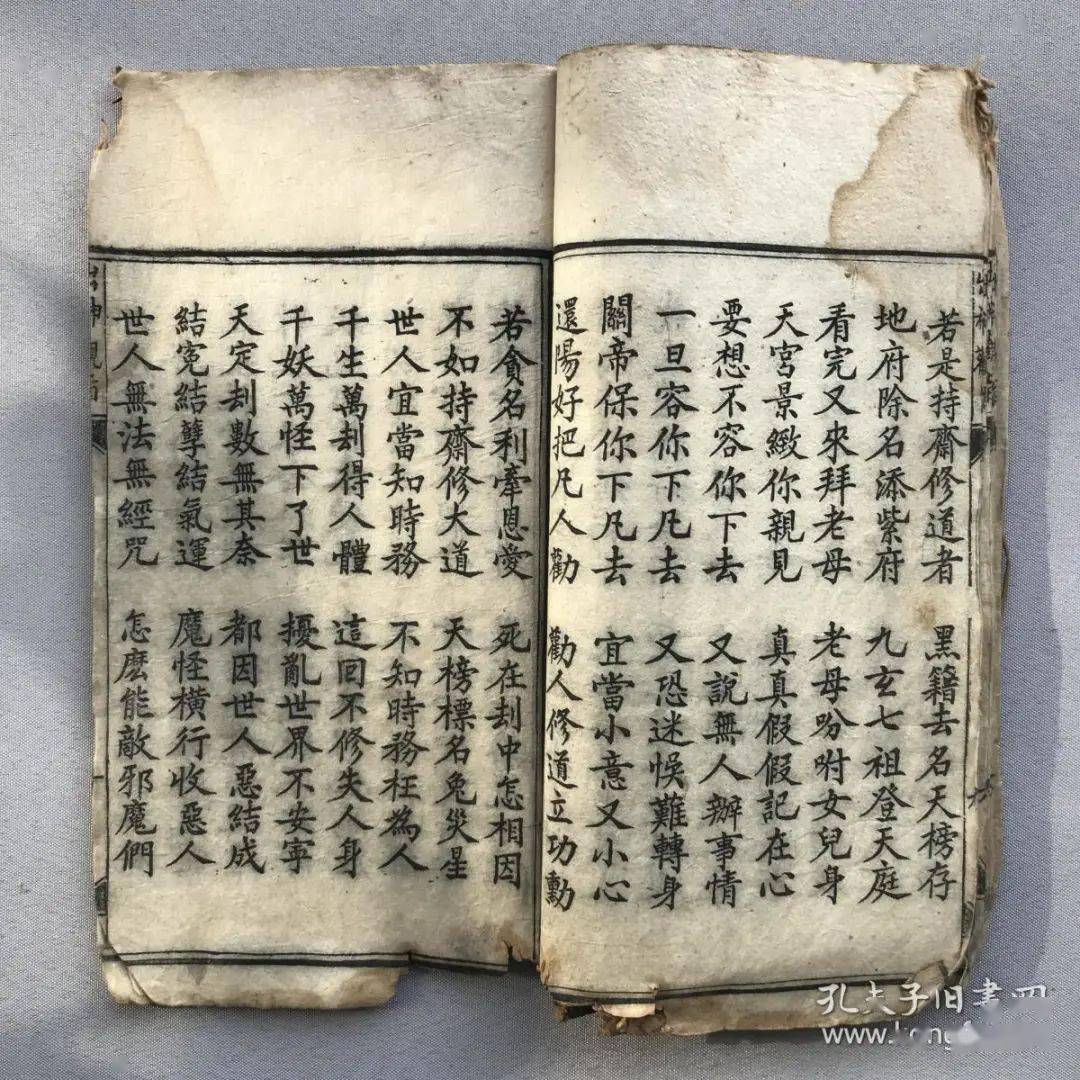 若是持齋修道者 黑籍去名天榜存
地府除名添紫府 九玄七祖登天庭
看完又來拜老母 老母吩咐女兒身
天宮景緻你親見 真真假假記在心
要想不容你下去 又說無人辦事情
一旦容你下凡去 又恐迷悞難轉身
關帝保你下凡去 宜當小意又小心
還陽好把凡人勸 勸人修道立功勳
若貪名利牽恩愛 死在刦中怎相因
不如持齋修大道 天榜標名免災星
世人宜當知時務 不知時務枉為人
千生萬刦得人體 這回不修失人身
千妖萬怪下了世 擾亂世界不安寧
天定刦數無其奈 都因世人惡結成
結寃結孽結氣運 魔怪橫行收惡人
世人無法無經咒 怎麽能敵邪魔們
孔夫子旧书网